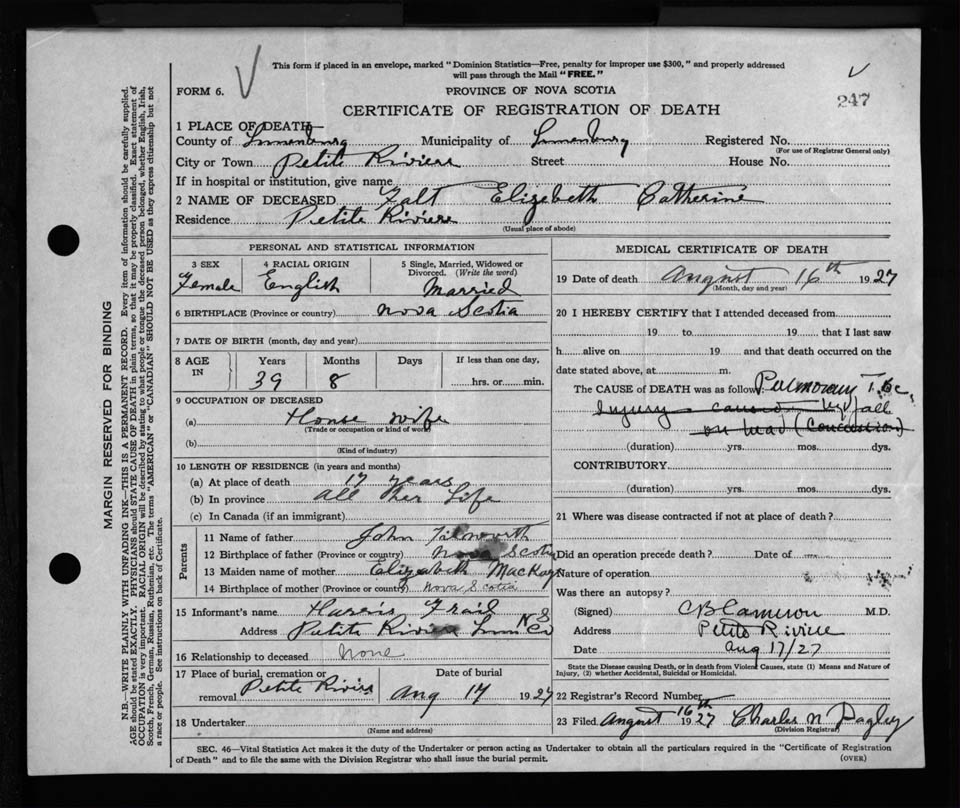 This form if placed in an envelope, marked "Dominion Statistics—Free, penalty for improper use $300," and properly addressed
will pass through the Mail "FREE."
FORM 6.
PROVINCE OF NOVA SCOTIA
247
CERTIFICATE OF REGISTRATION OF DEATH
1 PLACE OF DEATH—
County of Lunenburg Municipality of Lunenburg Registered No.
(For use of Registrar General only)
City or Town Petite Riviere Street House No.
If in hospital or institution, give name
2 NAME OF DECEASED Falt Elizabeth Catherine
Residence Petite Riviere
(Usual place of abode)
PERSONAL AND STATISTICAL INFORMATION
3 SEX 4 RACIAL ORIGIN 5 Single, Married, Widowed or Divorced. (Write the word)
Female English Married
6 BIRTHPLACE (Province or country) Nova Scotia
7 DATE OF BIRTH (month, day and year)
8 AGE IN Years Months Days If less than one day,
39 8 hrs. or min.
9 OCCUPATION OF DECEASED
(a) House wife
(Trade or occupation or kind of work)
(b)
(Kind of industry)
10 LENGTH OF RESIDENCE (in years and months)
(a) At place of death 17 years
(b) In province all her life
(c) In Canada (if an immigrant)
Parents
11 Name of father John
12 Birthplace of father (Province or country) Nova Scotia
13 Maiden name of mother Elizabeth MacKay
14 Birthplace of mother (Province or country) Nova Scotia
15 Informant's name Harris
Address Petite Riviere Lun Co N S
16 Relationship to deceased None
17 Place of burial, cremation or removal Petite Riviere Date of burial Aug 17 1927
18 Undertaker
(Name and address)
MEDICAL CERTIFICATE OF DEATH
19 Date of death August 16th 1927
(Month, day and year)
20 I HEREBY CERTIFY that I attended deceased from
19 to 19 that I last saw
h alive on 19 and that death occurred on the
date stated above, at m.
The CAUSE of DEATH was as follows Pulmonary T.Bc.
Injury caused by fall
on head (Concussion)
(duration) yrs. mos. dys.
CONTRIBUTORY.
(duration) yrs. mos. dys.
21 Where was disease contracted if not at place of death?
Did an operation precede death? Date of
Nature of operation
Was there an autopsy?
(Signed) C B Cameron M.D.
Address Petite Riviere
Date Aug 17/27
State the Disease causing Death, or in death from Violent Causes, state (1) Means and Nature of
Injury, (2) whether Accidental, Suicidal or Homicidal.
22 Registrar's Record Number
23 Filed August 16th 1927 Charles N
(Division Registrar)
SEC. 46—Vital Statistics Act makes it the duty of the Undertaker or person acting as Undertaker to obtain all the particulars required in the "Certificate of Registration
of Death" and to file the same with the Division Registrar who shall issue the burial permit.
(OVER)
MARGIN RESERVED FOR BINDING
N.B.—WRITE PLAINLY, WITH UNFADING INK—THIS IS A PERMANENT RECORD. Every item of information should be carefully supplied.
AGE should be stated EXACTLY. PHYSICIANS should STATE CAUSE OF DEATH in plain terms, so that it may be properly classified. Exact statement of
OCCUPATION is very important. RACIAL ORIGIN will be described by stating to what people or tongue the deceased person belonged, whether English, Irish,
Scotch, French, German, Russian, Ruthenian, etc. The terms "AMERICAN" or "CANADIAN" SHOULD NOT BE USED as they express citizenship but not
a race or people. See instructions on back of Certificate.